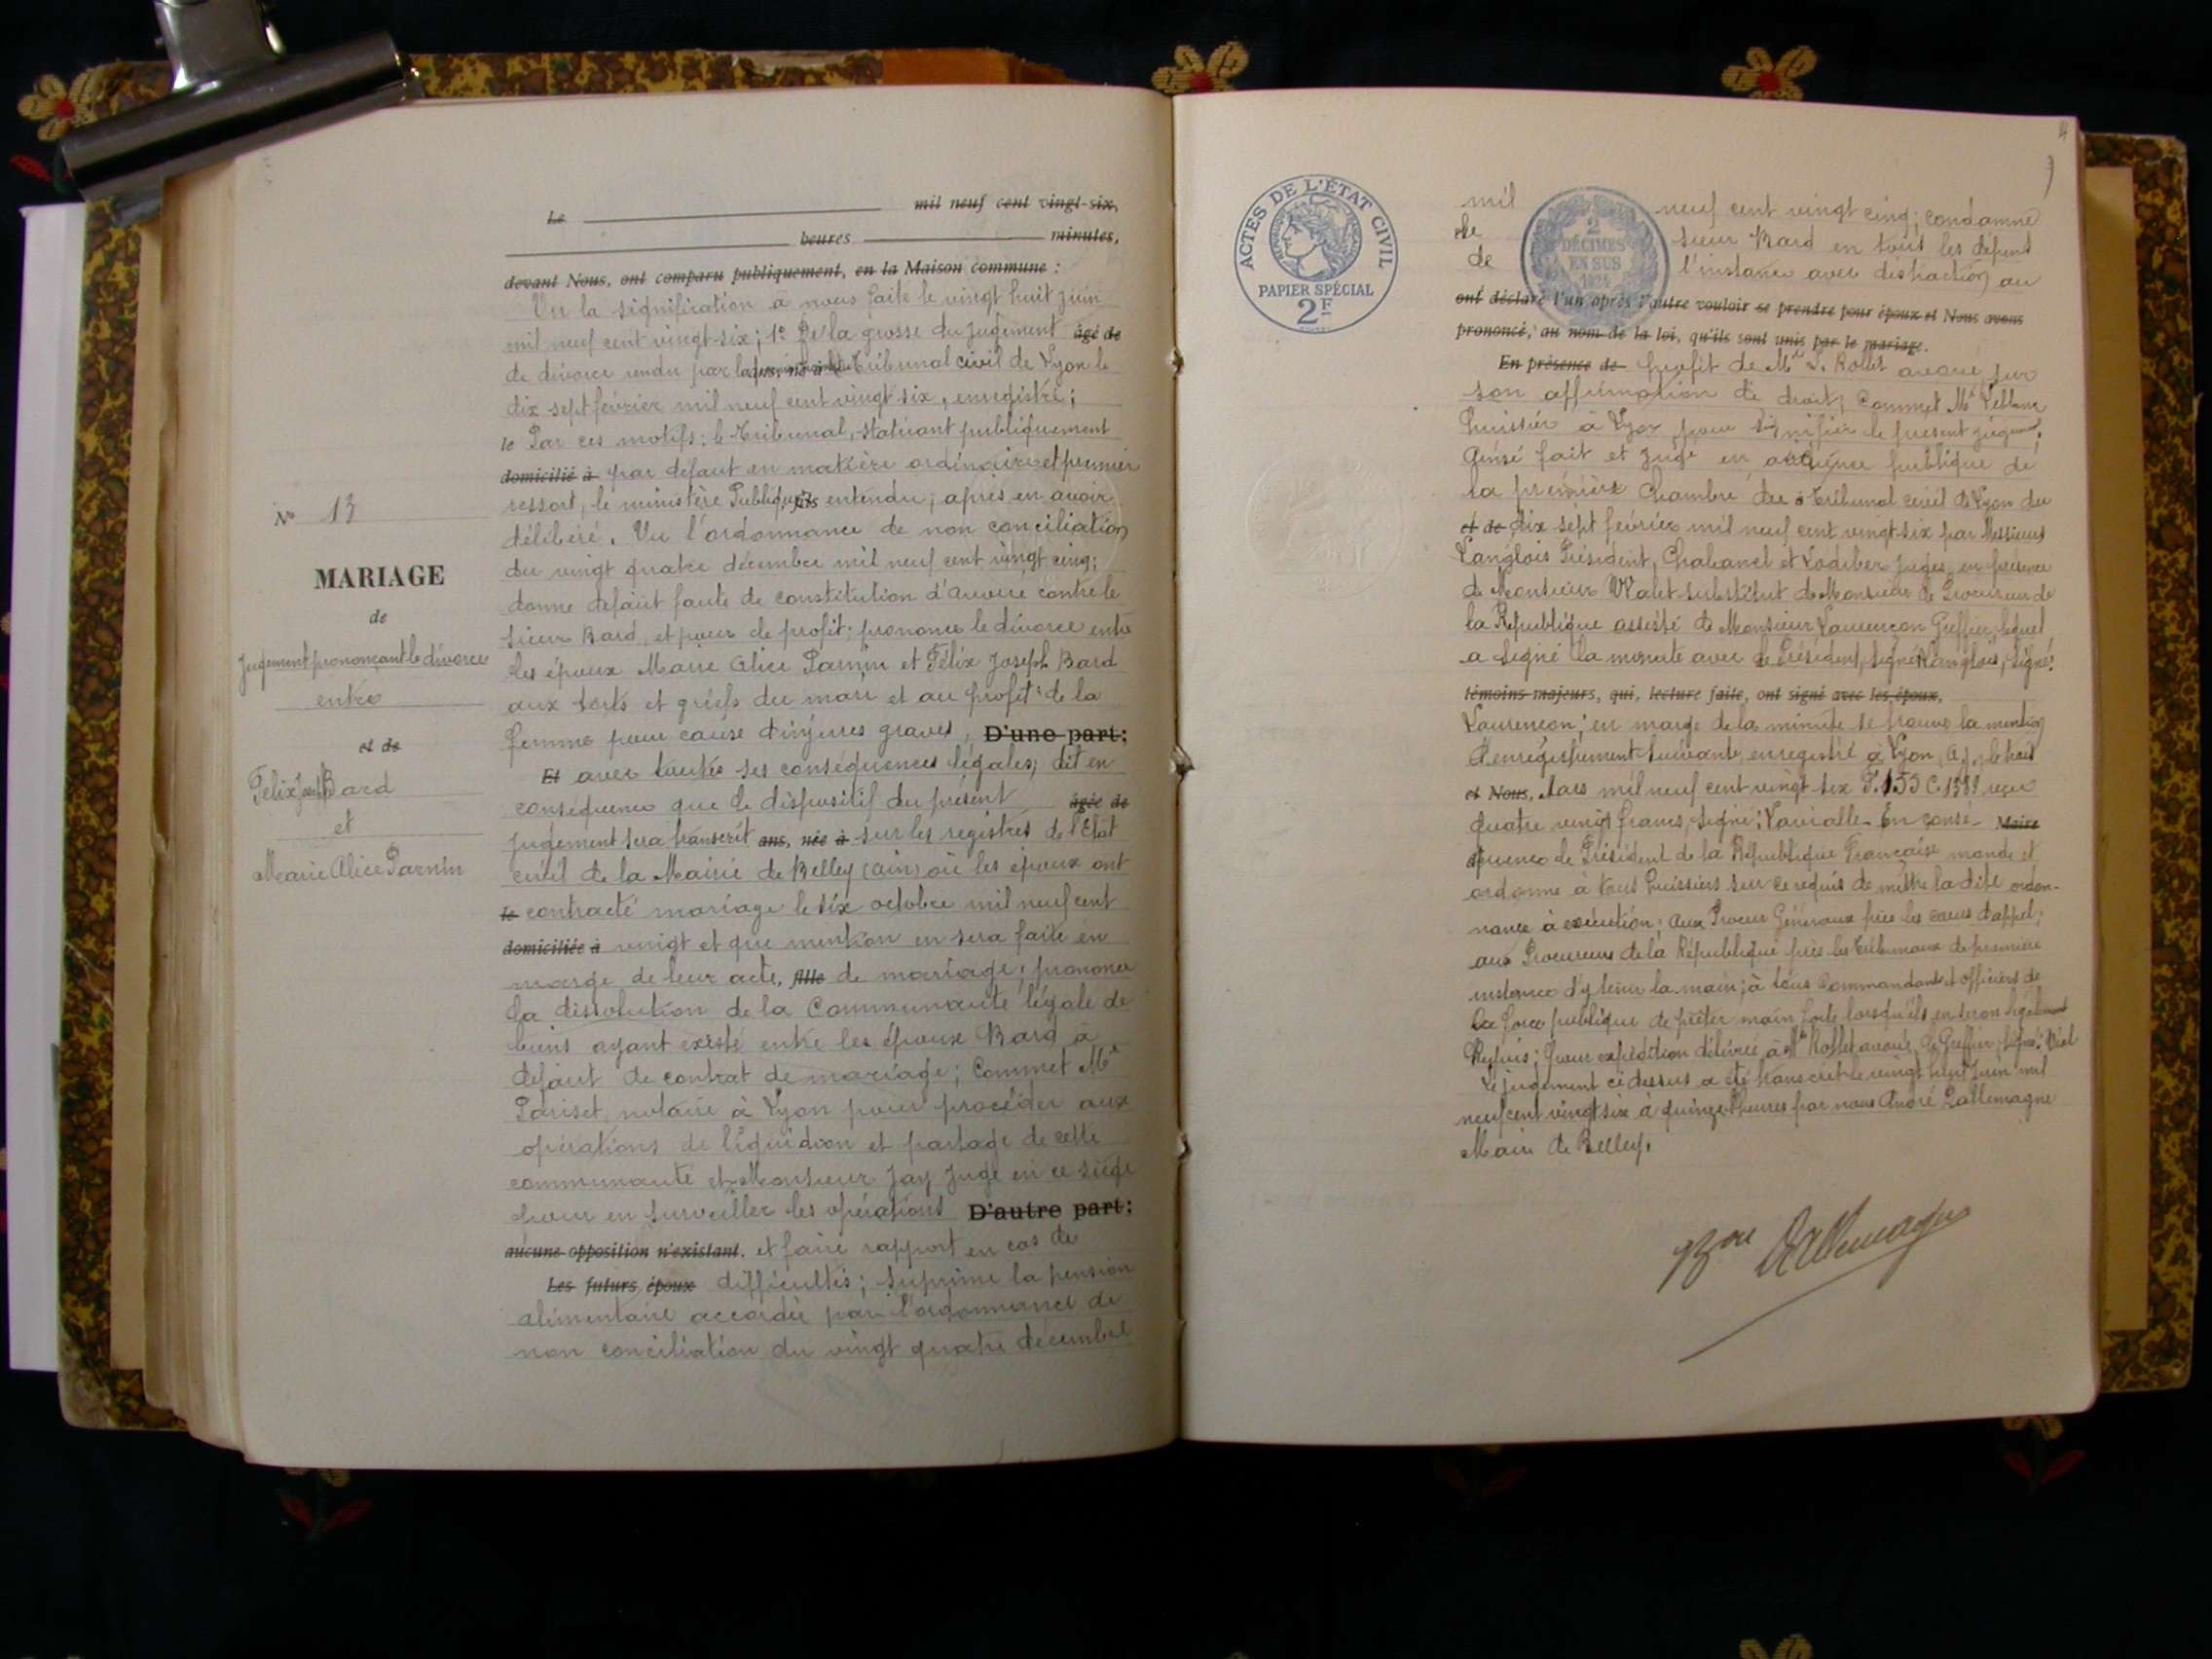 Nº 13
MARIAGE
de
Jugement prononçant le divorce
entre
et de
Felix Joseph Bard
et
Marie Alice Parnin
Le mil neuf cent vingt-six,
heures minutes,
devant Nous, ont comparu publiquement, en la Maison commune :
Vu la signification à nous faite le vingt huit juin
mil neuf cent vingt-six; 1º De la grosse du jugement âgé de
de divorce rendu par le Tribunal civil de Lyon le
dix sept février mil neuf cent vingt six, enregistré;
le Par ces motifs; le Tribunal, statuant publiquement
domicilié à par défaut en matière ordinaire et premier
ressort, le ministère Public, fils entendu; après en avoir
délibéré. Vu l'ordonnance de non conciliation
du vingt quatre décembre mil neuf cent vingt cinq;
donne defaut faute de constitution d'avoué contre le
sieur Bard, et pour le profit: prononce le divorce entre
les époux Marie Alice Parnin et Félix Joseph Bard
aux torts et griefs du mari et au profit de la
femme pour cause d'injures graves, D'une part;
Et avec toutes ses conséquences légales, dit en
conséquence que le dispositif du présent âgée de
jugement sera transcrit ans, née à sur les registres de l'Etat
civil de la Mairie de Belley (ain) où les époux ont
le contracté mariage le six octobre mil neuf cent
domiciliée à vingt et que mention en sera faite en
marge de leur acte, fille de mariage; prononce
la dissolution de la Communauté légale de
biens ayant existé entre les époux Bard à
défaut de contrat de mariage; Commet Me
Pariset, notaire à Lyon pour procéder aux
opérations de liquidion et partage de cette
communauté et Monsieur Jay Juge en ce siège
pour en surveiller les opérations D'autre part;
aucune opposition n'existant. et faire rapport en cas de
Les futurs époux difficultés; suprime la pension
alimentaire accordée par l'ordonnance de
non conciliation du vingt quatre décembre
ACTES DE L'ÉTAT CIVIL
PAPIER SPÉCIAL
2F
2
DÉCIMES
EN SUS
1924
mil neuf cent vingt cinq; condamne
le sieur Bard en tous les dépens
de l'instance avec distraction au
ont déclaré l'un après l'autre vouloir se prendre pour époux et Nous avons
prononcé, au nom de la loi, qu'ils sont unis par le mariage.
En présence de profit de Me Rollet avoué, sur
son affirmation de droit, Commet Me Leblanc
huissier à Lyon pour signifier le présent jugement;
Ainsi fait et jugé en audience publique de
la première Chambre du Tribunal civil de Lyon du
et de dix sept février mil neuf cent vingt-six par Messieurs
Langlois Président, Chabanel et juges, en présence
de Monsieur Walet substitut de Monsieur le Procureur de
la République assisté de Monsieur Laurençon Greffier, lequel
a signé la minute avec le Président, signé: Langlois, signé:
témoins majeurs, qui, lecture faite, ont signé avec les époux,
Laurençon; en marge de la minute se trouve la mention
d'enregistrement suivante, enregistré à Lyon, A.j., le huit
et Nous, Mars mil neuf cent vingt six reçu
quatre vingt francs, signé: En consé- Maire
quence le Président de la République Française mande et
ordonne à tous huissiers sur ce requis de mettre la dite ordon-
nance à exécution; aux Procureurs Généraux près les cours d'appel;
aux Procureurs de la République près les Tribunaux de première
instance d'y tenir la main; à tous Commandants et officiers de
la force publique de prêter main forte lorsqu'ils en seront légalement
Requis; pour expédition délivrée à Me Rollet avoué, le Greffier, signé: Vial
Le jugement ci dessus a été transcrit le vingt huit Juin mil
neuf cent vingt six à quinze heures par nous André Dallemagne
Maire de Belley.
Bon Dallemagne